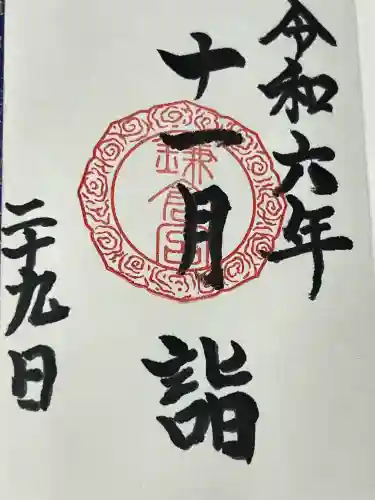 令和六年
十一月詣
二十九日
鎌倉宮